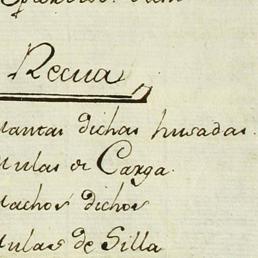 Recua
dichas husadas.
Mulas de Carga.
Machos dichos
Mulas de Silla